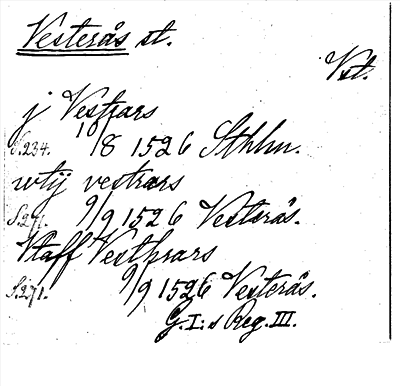 Vesterås st.
Vst.
j Vestrars
S.234. 10/8 1526 Sthlm.
wtij vestrars
S.271. 9/9 1526 Vesterås.
Staff Vesthrars
S.271. 9/9 1526 Vesterås.
G.I:s Reg. III.